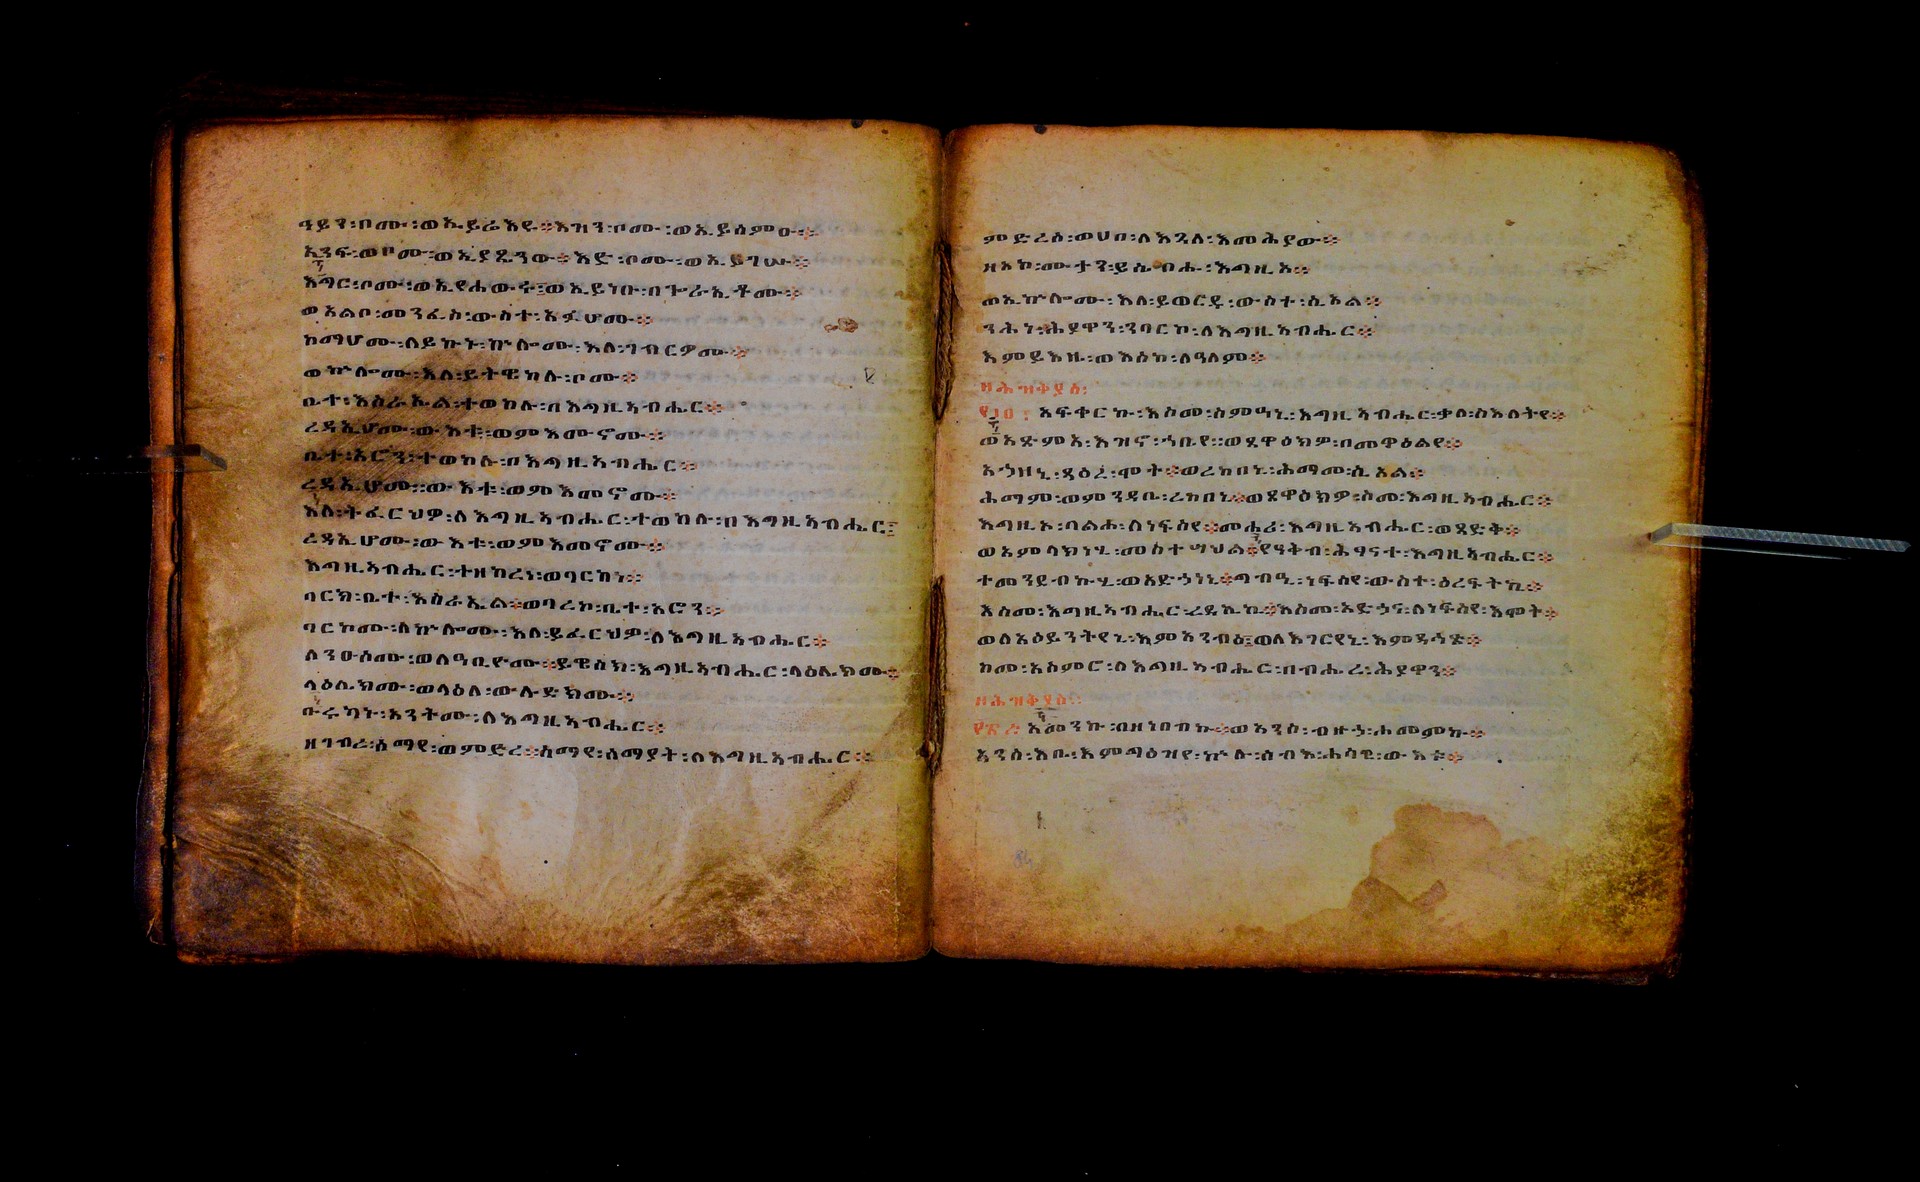 ዓይን፡ቦሙ፡ወኢይሬእዩ፨እዝን፡ቦሙ፡ወኢይሰምዑ፨
አንፍ፡ወቦሙ፡ወኢያጼንው፨እድ፡ቦሙ፡ወኢይገሡ፨
እግር፡ቦሙ፡ወኢየሐውሩ፨ወኢይነቡ፡በጕራኢቶሙ፨
ወአልቦ፡መንፈስ፡ውስተ፡አፉሆሙ፨
ከማሆሙ፡ለይኩኑ፡ኵሎሙ፡እለ፡ገብርዎሙ፨
ወኵሎሙ፡እለ፡ይትዌከሉ፡ቦሙ፨
ቤተ፡እስራኤል፡ተወከሉ፡በእግዚአብሔር፨
ረዳኢሆሙ፡ውእቱ፡ወምእመኖሙ፨
ቤተ፡አሮን፡ተወከሉ፡በእግዚአብሔር፨
ረዳኢሆሙ፡ውእቱ፡ወምእመኖሙ፨
እለ፡ትፈርህዎ፡ለእግዚአብሔር፡ተወከሉ፡በእግዚአብሔር፨
ረዳኢሆሙ፡ውእቱ፡ወምእመኖሙ፨
እግዚአብሔር፡ተዘከረነ፡ወባርከነ፨
ባርክ፡ቤተ፡እስራኤል፨ወባረከ፡ቤተ፡አሮን፨
ባርኮሙ፡ለኵሎሙ፡እለ፡ይፈርህዎ፡ለእግዚአብሔር፨
ለንዑሶሙ፡ወለዓቢዮሙ፨ይዌስክ፡እግዚአብሔር፡ላዕሌክሙ፨
ላዕሌክሙ፡ወላዕለ፡ውሉድክሙ፨
ቡሩካኑ፡አንትሙ፡ለእግዚአብሔር፨
ዘገብረ፡ሰማየ፡ወምድረ፨ሰማየ፡ሰማያት፡ለእግዚአብሔር፨
ምድረሰ፡ወሀበ፡ለእጓለ፡እመሕያው፨
ዘአኮ፡ሙታን፡ይሴብሑ፡እግዚአ፨
ወኢኵሎሙ፡እለ፡ይወርዱ፡ውስተ፡ሲኦል፨
ንሕነ፡ሕያዋን፡ንባርኮ፡ለእግዚአብሔር፨
እምይእዜ፡ወእስከ፡ለዓለም፨
ዘሕዝቅያስ፡
አፍቀርኩ፡እስመ፡ስምዓኒ፡እግዚአብሔር፡ቃለ፡ስእለትየ፨
ወአጽምአ፡እዝኖ፡ኀቤየ፨ወጸዋዕክዎ፡በመዋዕልየ፨
አኀዘኒ፡ጻዕረ፡ሞት፨ወረከበኒ፡ሕማመ፡ሲኦል፨
ሕማም፡ወምንዳቤ፡ረከበኒ፨ወጸዋዕክዎ፡ስመ፡እግዚአብሔር፨
እግዚኦ፡ባልሐ፡ለነፍስየ፨መሓሪ፡እግዚአብሔር፡ወጻድቅ፨
ወአምላክነሂ፡መስተሣህል፨የዓቅብ፡ሕፃናተ፡እግዚአብሔር፨
ተመንደብኩሂ፡ወአድኀነኒ፨ግብዒ፡ነፍስየ፡ውስተ፡ዕረፍትኪ፨
እስመ፡እግዚአብሔር፡ረድኤኪ፨እስመ፡አድኀና፡ለነፍስየ፡እሞት፨
ወለአዕይንትየኒ፡እምአንብዕ፨ወለእገርየኒ፡እምዳኅጽ፨
ከመ፡አስምሮ፡ለእግዚአብሔር፡በብሔረ፡ሕያዋን፨
ዘሕዝቅያስ፨
አመንኩ፡በዘነበብኩ፨ወአንሰ፡ብዙኀ፡ሐመምኩ፨
አንሰ፡እቤ፡እምግዕዝየ፡ኵሉ፡ሰብእ፡ሐሳዊ፡ውእቱ፨